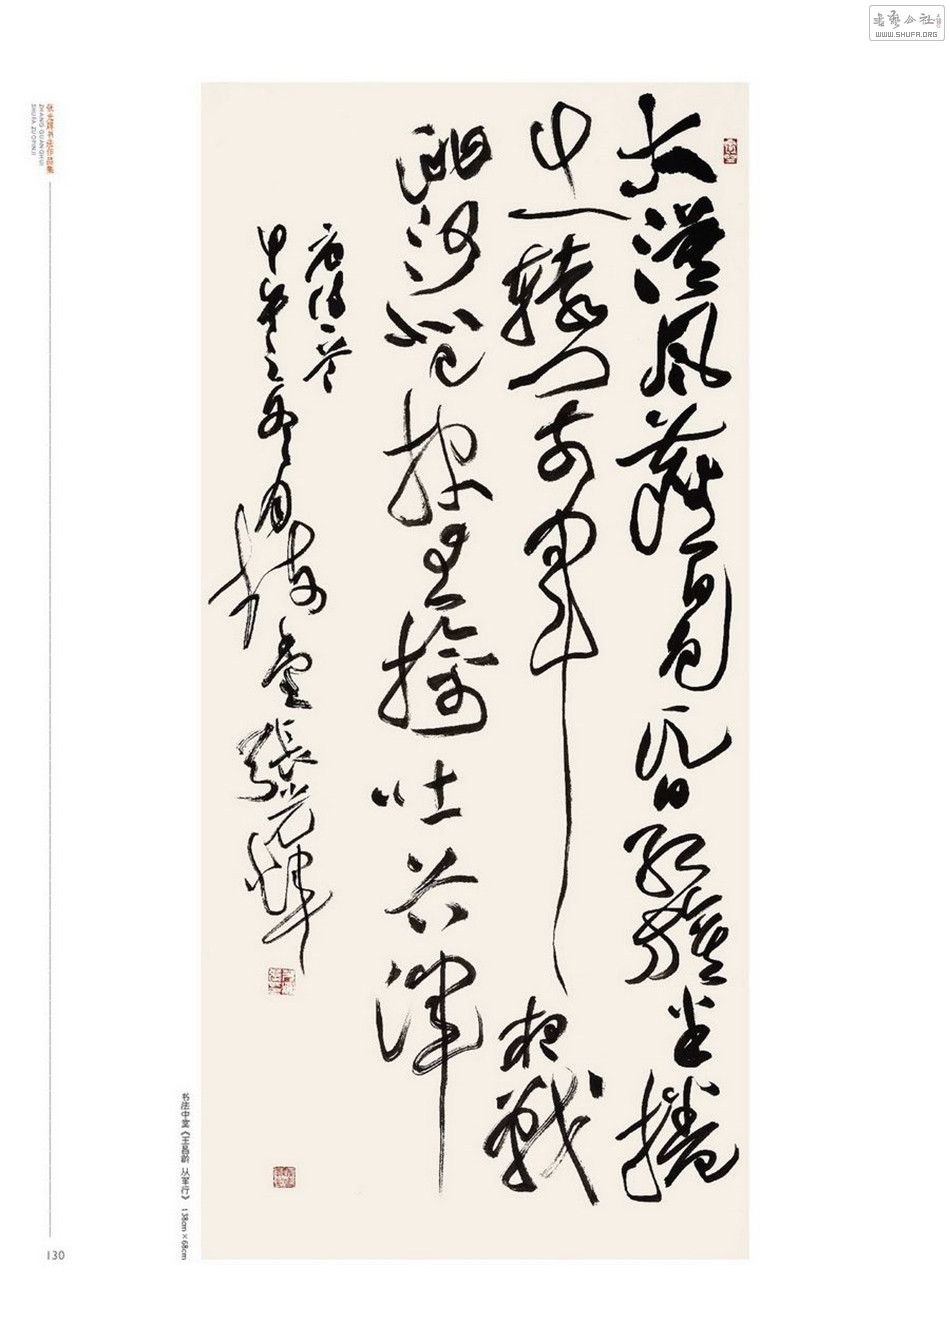 书艺公社
WWW.SHUFA.ORG
张光辉书法作品集
ZHANG GUANGHUI
SHUFA ZUOPINJI
大漠風塵日色昏紅旗半捲
出轅門前軍夜戰
洮河北已報生擒吐谷渾
唐詩一首
甲午之冬月 堂張光輝
书法中堂《王昌龄 从军行》 138cm×68cm
130